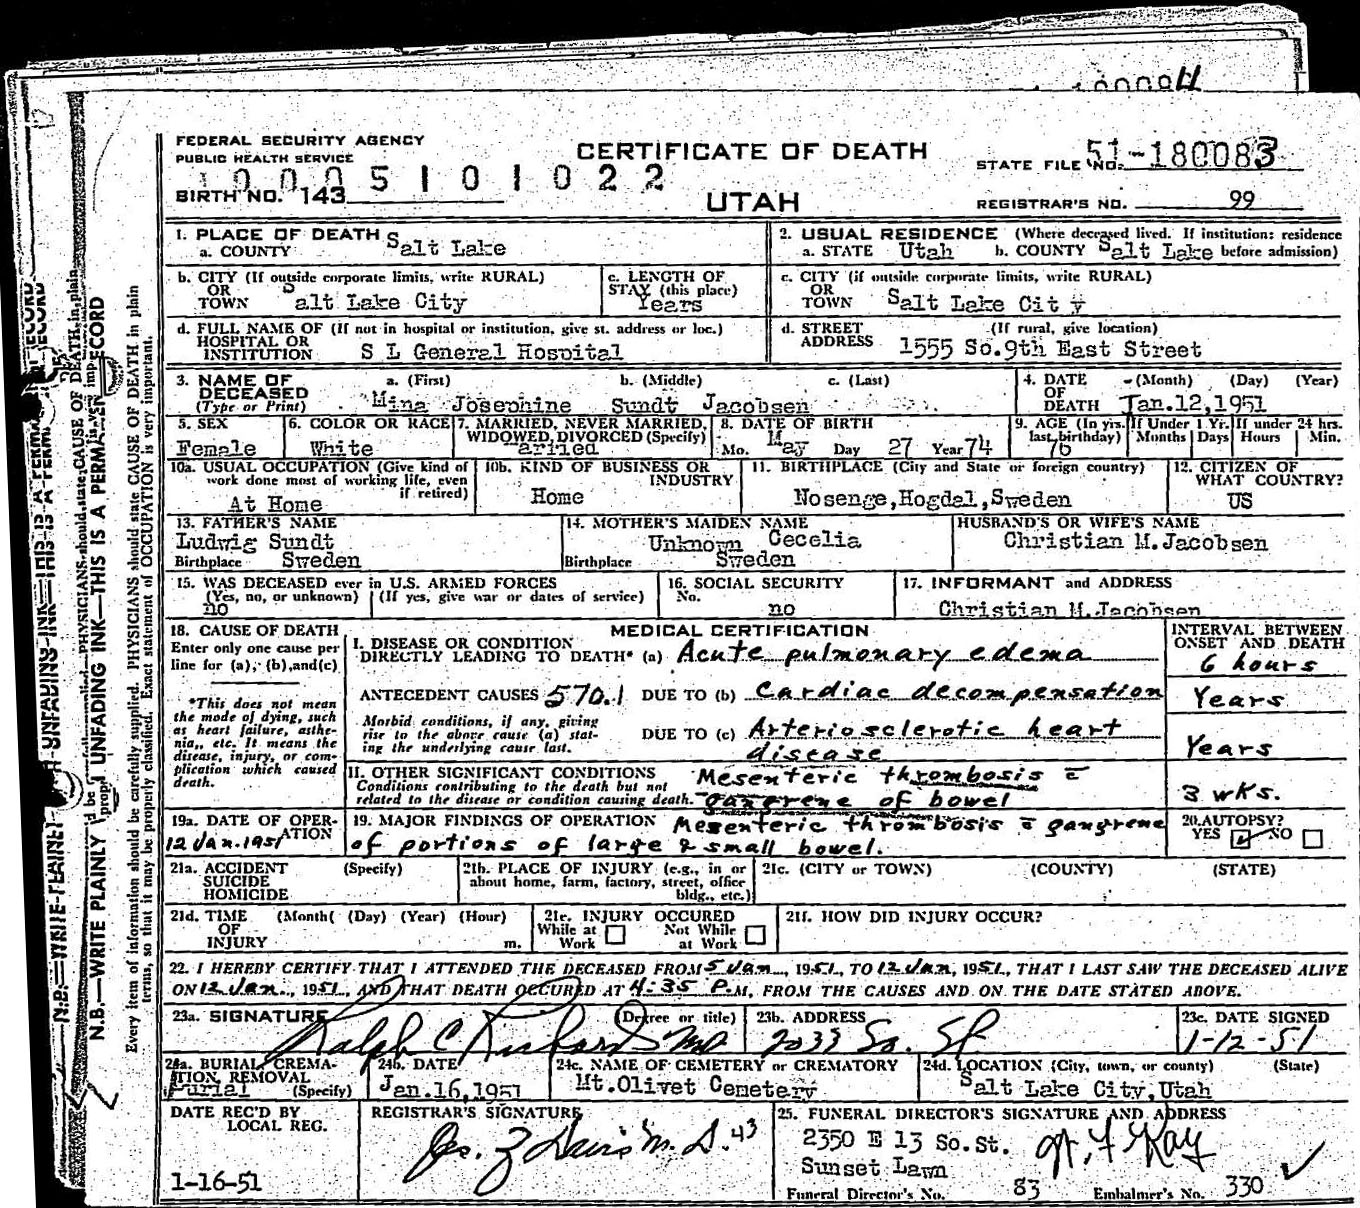 180084
FEDERAL SECURITY AGENCY
PUBLIC HEALTH SERVICE
CERTIFICATE OF DEATH
STATE FILE NO. 51-180083
1 0 0 0 5 1 0 1 0 2 2
BIRTH NO. 143
UTAH
REGISTRAR'S NO. 99
1. PLACE OF DEATH
a. COUNTY Salt Lake
2. USUAL RESIDENCE (Where deceased lived. If institution: residence
a. STATE Utah b. COUNTY Salt Lake before admission)
b. CITY (If outside corporate limits, write RURAL)
OR
TOWN Salt Lake City
c. LENGTH OF
STAY (this place)
Years
c. CITY (if outside corporate limits, write RURAL)
OR
TOWN Salt Lake Cit y
d. FULL NAME OF (If not in hospital or institution, give st. address or loc.)
HOSPITAL OR
INSTITUTION S L General Hospital
d. STREET (If rural, give location)
ADDRESS 1555 So.9th East Street
3. NAME OF DECEASED (Type or Print)
a. (First) b. (Middle) c. (Last)
Mina Josephine Sundt Jacobsen
4. DATE OF DEATH (Month) (Day) (Year)
Jan.12,1951
5. SEX
Female
6. COLOR OR RACE
White
7. MARRIED, NEVER MARRIED,
WIDOWED, DIVORCED (Specify)
arried
8. DATE OF BIRTH
Mo. May Day 27 Year 74
9. AGE (In yrs. last birthday)
76
If Under 1 Yr. Months Days
If under 24 hrs. Hours Min.
10a. USUAL OCCUPATION (Give kind of
work done most of working life, even
if retired)
At Home
10b. KIND OF BUSINESS OR
INDUSTRY
Home
11. BIRTHPLACE (City and State or foreign country)
Nosenge,Hogdal,Sweden
12. CITIZEN OF
WHAT COUNTRY?
US
13. FATHER'S NAME
Ludwig Sundt
Birthplace Sweden
14. MOTHER'S MAIDEN NAME
Unknown Cecelia
Birthplace Sweden
HUSBAND'S OR WIFE'S NAME
Christian M.Jacobsen
15. WAS DECEASED ever in U.S. ARMED FORCES
(Yes, no, or unknown) (If yes, give war or dates of service)
no
16. SOCIAL SECURITY
No.
no
17. INFORMANT and ADDRESS
Christian M.Jacobsen
18. CAUSE OF DEATH
Enter only one cause per
line for (a), (b), and (c)
*This does not mean
the mode of dying, such
as heart failure, asthe-
nia, etc. It means the
disease, injury, or com-
plication which caused
death.
MEDICAL CERTIFICATION
INTERVAL BETWEEN
ONSET AND DEATH
I. DISEASE OR CONDITION
DIRECTLY LEADING TO DEATH* (a) Acute pulmonary edema
6 hours
ANTECEDENT CAUSES 570.1 DUE TO (b) Cardiac decompensation
Years
Morbid conditions, if any, giving
rise to the above cause (a) stat-
ing the underlying cause last.
DUE TO (c) Arteriosclerotic heart
disease
Years
II. OTHER SIGNIFICANT CONDITIONS
Conditions contributing to the death but not
related to the disease or condition causing death.
Mesenteric thrombosis c̄
gangrene of bowel
3 wks.
19a. DATE OF OPER-
ATION
12 Jan. 1951
19. MAJOR FINDINGS OF OPERATION Mesenteric thrombosis c̄ gangrene
of portions of large & small bowel.
20. AUTOPSY?
YES NO
21a. ACCIDENT (Specify)
SUICIDE
HOMICIDE
21b. PLACE OF INJURY (e.g., in or
about home, farm, factory, street, office
bldg., etc.)
21c. (CITY or TOWN) (COUNTY) (STATE)
21d. TIME (Month( (Day) (Year) (Hour)
OF
INJURY m.
21e. INJURY OCCURED
While at Work Not While at Work
21f. HOW DID INJURY OCCUR?
22. I HEREBY CERTIFY THAT I ATTENDED THE DECEASED FROM 5 Jan., 1951, TO 12 Jan, 1951, THAT I LAST SAW THE DECEASED ALIVE
ON 12 Jan., 1951, AND THAT DEATH OCCURED AT 4:35 P.M, FROM THE CAUSES AND ON THE DATE STATED ABOVE.
23a. SIGNATURE (Degree or title)
Ralph C Richards MD
23b. ADDRESS
2033 So. St
23c. DATE SIGNED
1-12-51
24a. BURIAL, CREMA-
TION, REMOVAL
(Specify)
Burial
24b. DATE
Jan.16,1951
24c. NAME OF CEMETERY or CREMATORY
Mt.Olivet Cemetery
24d. LOCATION (City, town, or county) (State)
Salt Lake City,Utah
DATE REC'D BY
LOCAL REG.
1-16-51
REGISTRAR'S SIGNATURE
Jos. Z Davis M.D. 43
25. FUNERAL DIRECTOR'S SIGNATURE AND ADDRESS
2350 E 13 So.St.
Sunset Lawn
Funeral Director's No. 83 Embalmer's No. 330
N.B.—WRITE PLAINLY UNFADING INK—THIS IS A PERMANENT RECORD
Every item of information should be carefully supplied. PHYSICIANS should state CAUSE OF DEATH in plain
terms, so that it may be properly classified. Exact statement of OCCUPATION is very important.